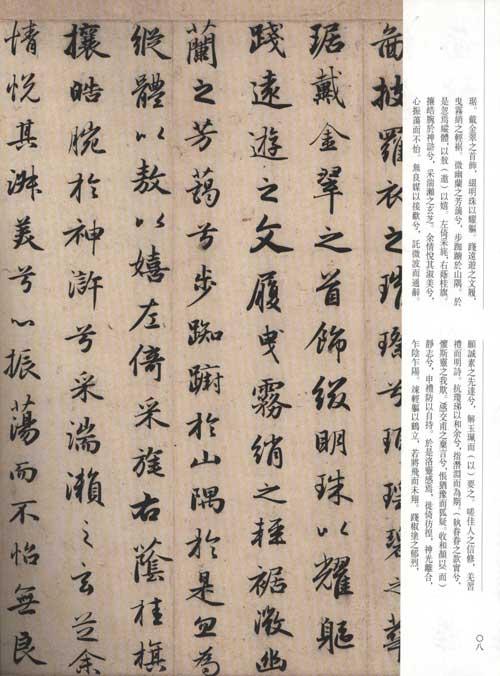 琚。戴金翠之首飾，綴明珠以耀軀。踐遠遊之文履，
曳霧綃之輕裾。微幽蘭之芳藹兮，步踟躕於山隅。於
是忽焉縱體，以敖（遨）以嬉。左倚采旄，右蔭桂旗。
攘皓腕於神滸兮，采湍瀨之玄芝。余情悅其淑美兮，
心振蕩而不怡。無良媒以接歡兮，託微波而通辭。
願誠素之先達兮，解玉珮而（以）要之。嗟佳人之信修，羌習
禮而明詩。抗瓊珶以和余兮，指潛淵而為期。（執眷眷之款實兮，
懼斯靈之我欺。）感交甫之棄言兮，悵猶豫而狐疑。收和顏以（而）
靜志兮，申禮防以自持。於是洛靈感焉，徙倚彷徨。神光離合，
乍陰乍陽。竦輕軀以鶴立，若將飛而未翔。踐椒塗之郁烈，
〇八
面披羅衣之璀璨兮珥瑤碧之華
琚戴金翠之首飾綴明珠以耀軀
踐遠遊之文履曳霧綃之輕裾微幽
蘭之芳藹兮步踟躕於山隅於是忽焉
縱體以敖以嬉左倚采旄右蔭桂旗
攘皓腕於神滸兮采湍瀨之玄芝余
情悅其淑美兮心振蕩而不怡無良